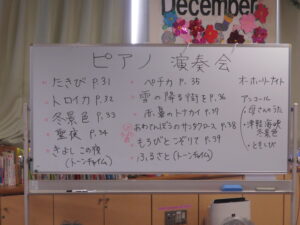 December
ピアノ 演奏会
・たきび P.31
・トロイカ P.32
・冬景色 P.33
・聖夜 P.34
・きよしこの夜
(トーンチャイム)
・ペチカ P.35
・雪の降る街を P.36
・赤鼻のトナカイ P.37
あわてんぼうのサンタクロース P.38
・もろびとこぞりて P.39
・ふるさと(トーンチャイム)
オー・ホーリーナイト
アンコール
・母さんのうた
・津軽海峡
冬景色
・ともしび